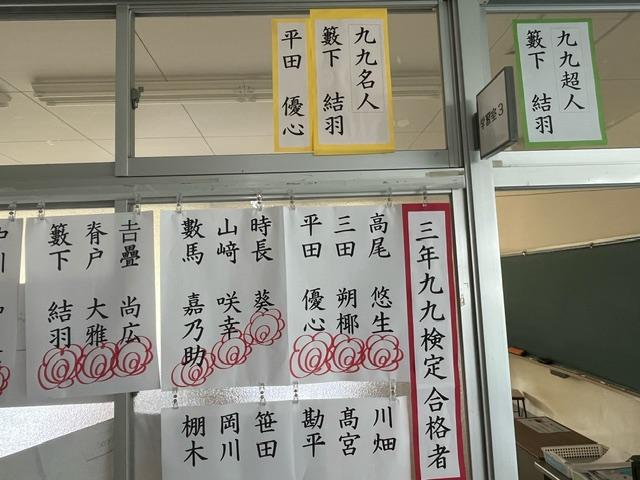 九九超人
籔下 結羽
学習室3
九九名人
籔下 結羽
平田 優心
三年九九検定合格者
高尾 悠生
三田 朔椰
平田 優心
時長 葵
山﨑 咲幸
數馬 嘉乃助
𠮷疊 尚広
脊戸 大雅
籔下 結羽
川畑
髙宮
勘平
笹田
岡川
棚木